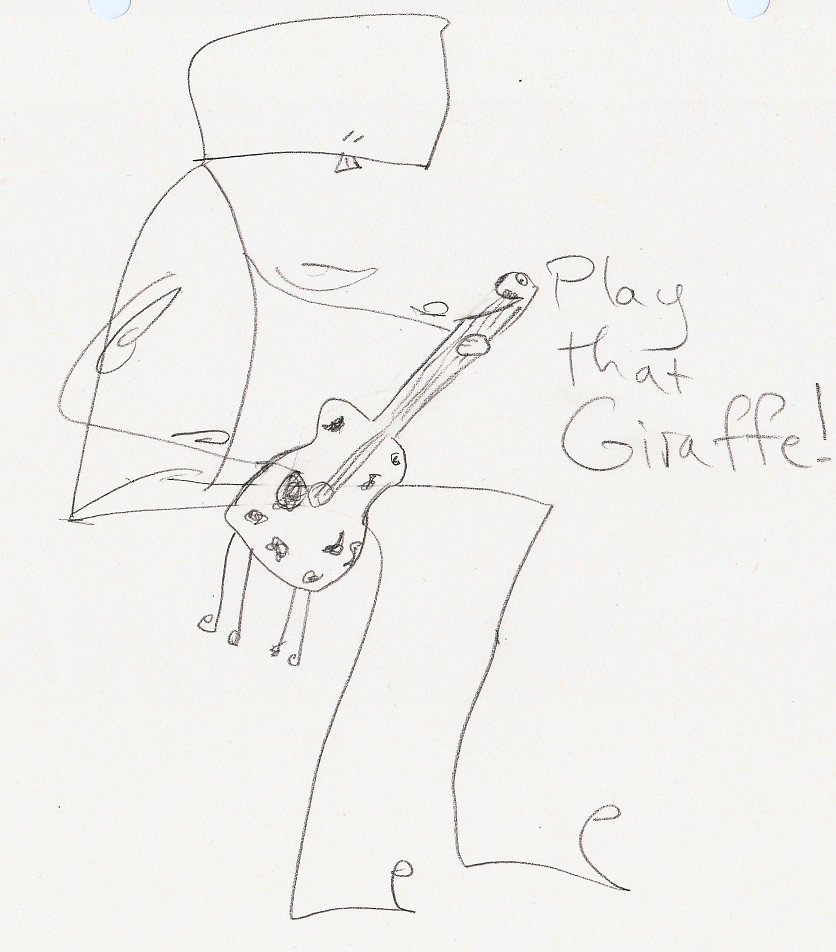 Play
that
Giraffe!